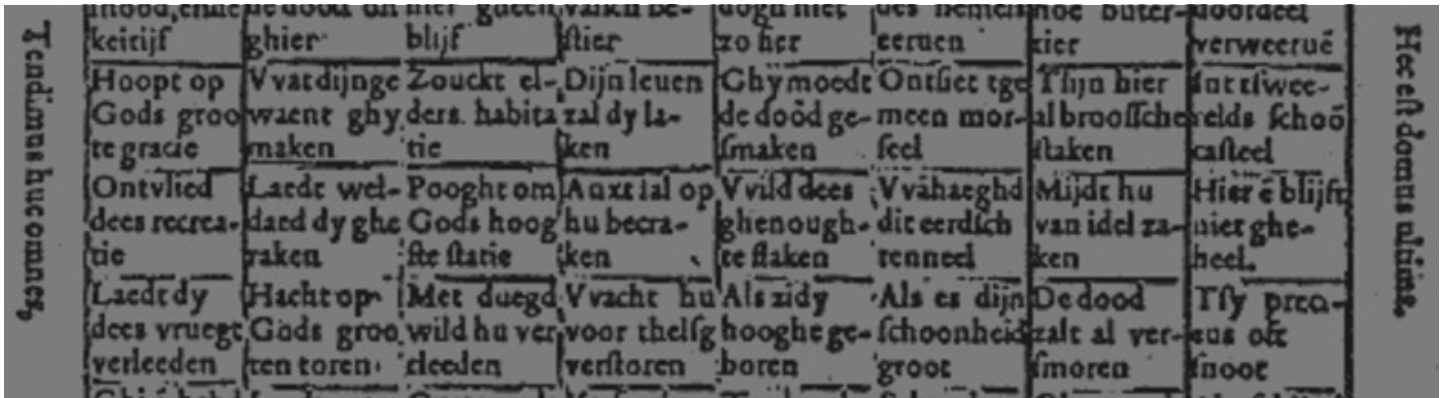 Tendimus huc omnes,
keitijf
ghier
blijf
stier
zo her
eeruen
verweeruē
Hoopt op
Gods groo
te gracie
VVat dijnge
waent ghy
maken
Zouckt el-
ders habita
tie
Dijn leuen
zal dy la-
ken
Ghy moedt
de dood ge-
smaken
Ontsiet tge
meen mor-
seel
Tsijn hier
al broossche
staken
relds schoō
casteel
Ontvlied
dees recrea-
tie
Laedt wel-
daed dy ghe
raken
Pooght om
Gods hoog
ste statie
hu becra-
ken
VVild dees
ghenough-
te staken
dit eerdsch
tenneel
Mijdt hu
van idel za-
ken
Hier ē blijft
niet ghe-
heel.
Laedt dy
dees vruegt
verleeden
Hacht op
Gods groo
ten toren
Met duegd
wild hu ver
cleeden
VVacht hu
voor thelsg
verstoren
Als zidy
hooghe ge-
boren
Als es dijn
schoonheid
groot
De dood
zalt al ver-
smoren
Tsy preti-
eus oft
snoot
Hec est domus ultima.